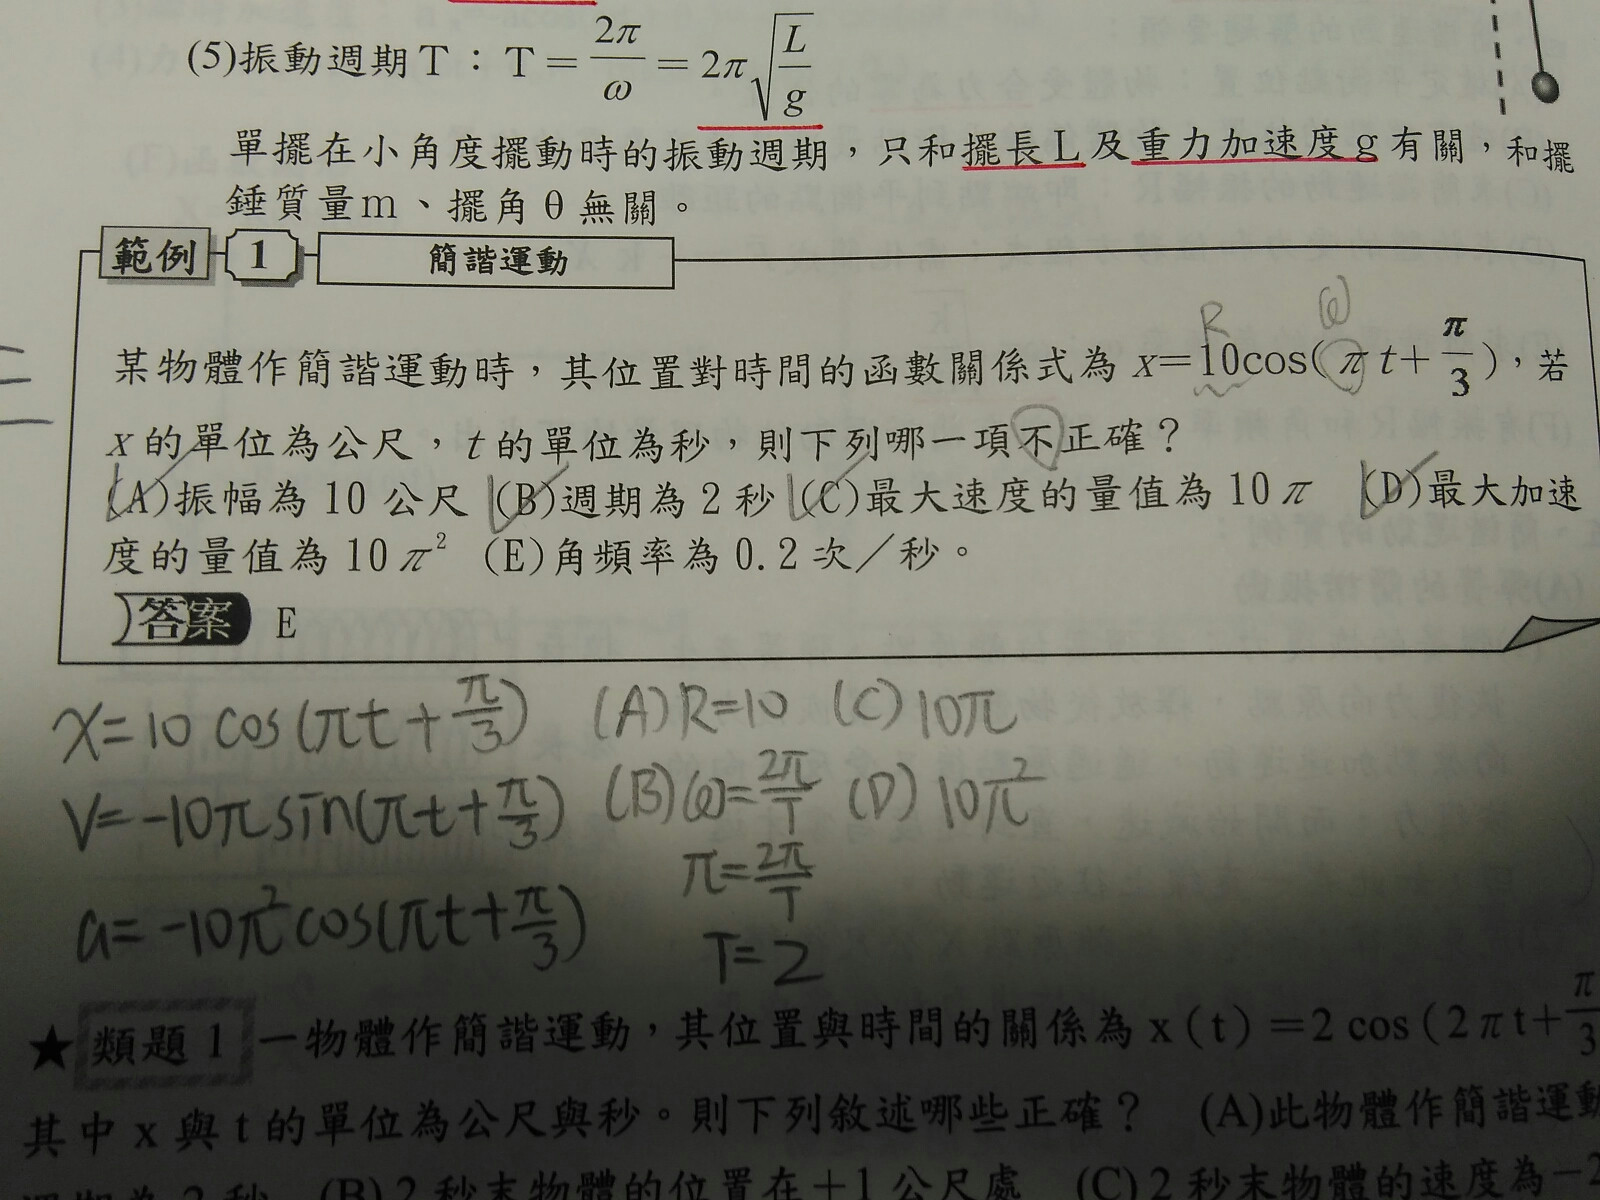 (5)振動週期T：T＝2π/ω＝2π√(L/g)
單擺在小角度擺動時的振動週期，只和擺長L及重力加速度g有關，和擺
錘質量m、擺角θ無關。
範例 1 簡諧運動
R ω
某物體作簡諧運動時，其位置對時間的函數關係式為 x=10cos(πt+π/3)，若
x的單位為公尺，t的單位為秒，則下列哪一項不正確？
(A)振幅為10公尺 (B)週期為2秒 (C)最大速度的量值為10π (D)最大加速
度的量值為10π² (E)角頻率為0.2次／秒。
答案 E
x=10 cos(πt+π/3) (A)R=10 (C)10π
V=-10π sin(πt+π/3) (B)ω=2π/T (D)10π²
π=2π/T
a=-10π²cos(πt+π/3)
T=2
★ 類題1 一物體作簡諧運動，其位置與時間的關係為x(t)=2 cos(2πt+π/3
其中x與t的單位為公尺與秒。則下列敘述哪些正確？ (A)此物體作簡諧運動
週期為2秒 (B)2秒末物體的位置在+1公尺處 (C)2秒末物體的速度為-2